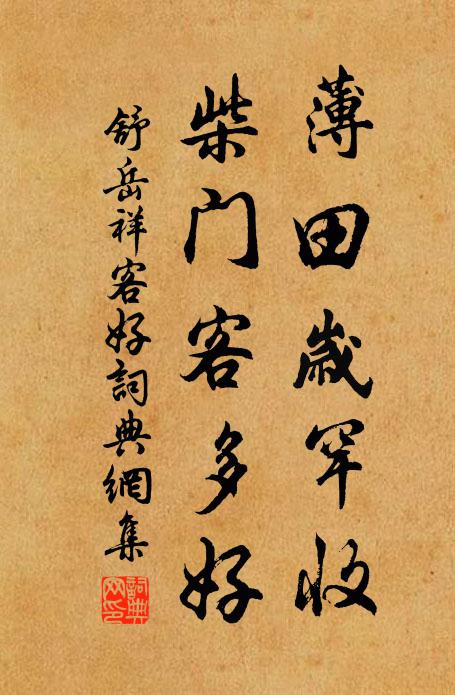 薄田歲罕收
柴门客多好
舒岳祥客好詞典網集
詞典
网印